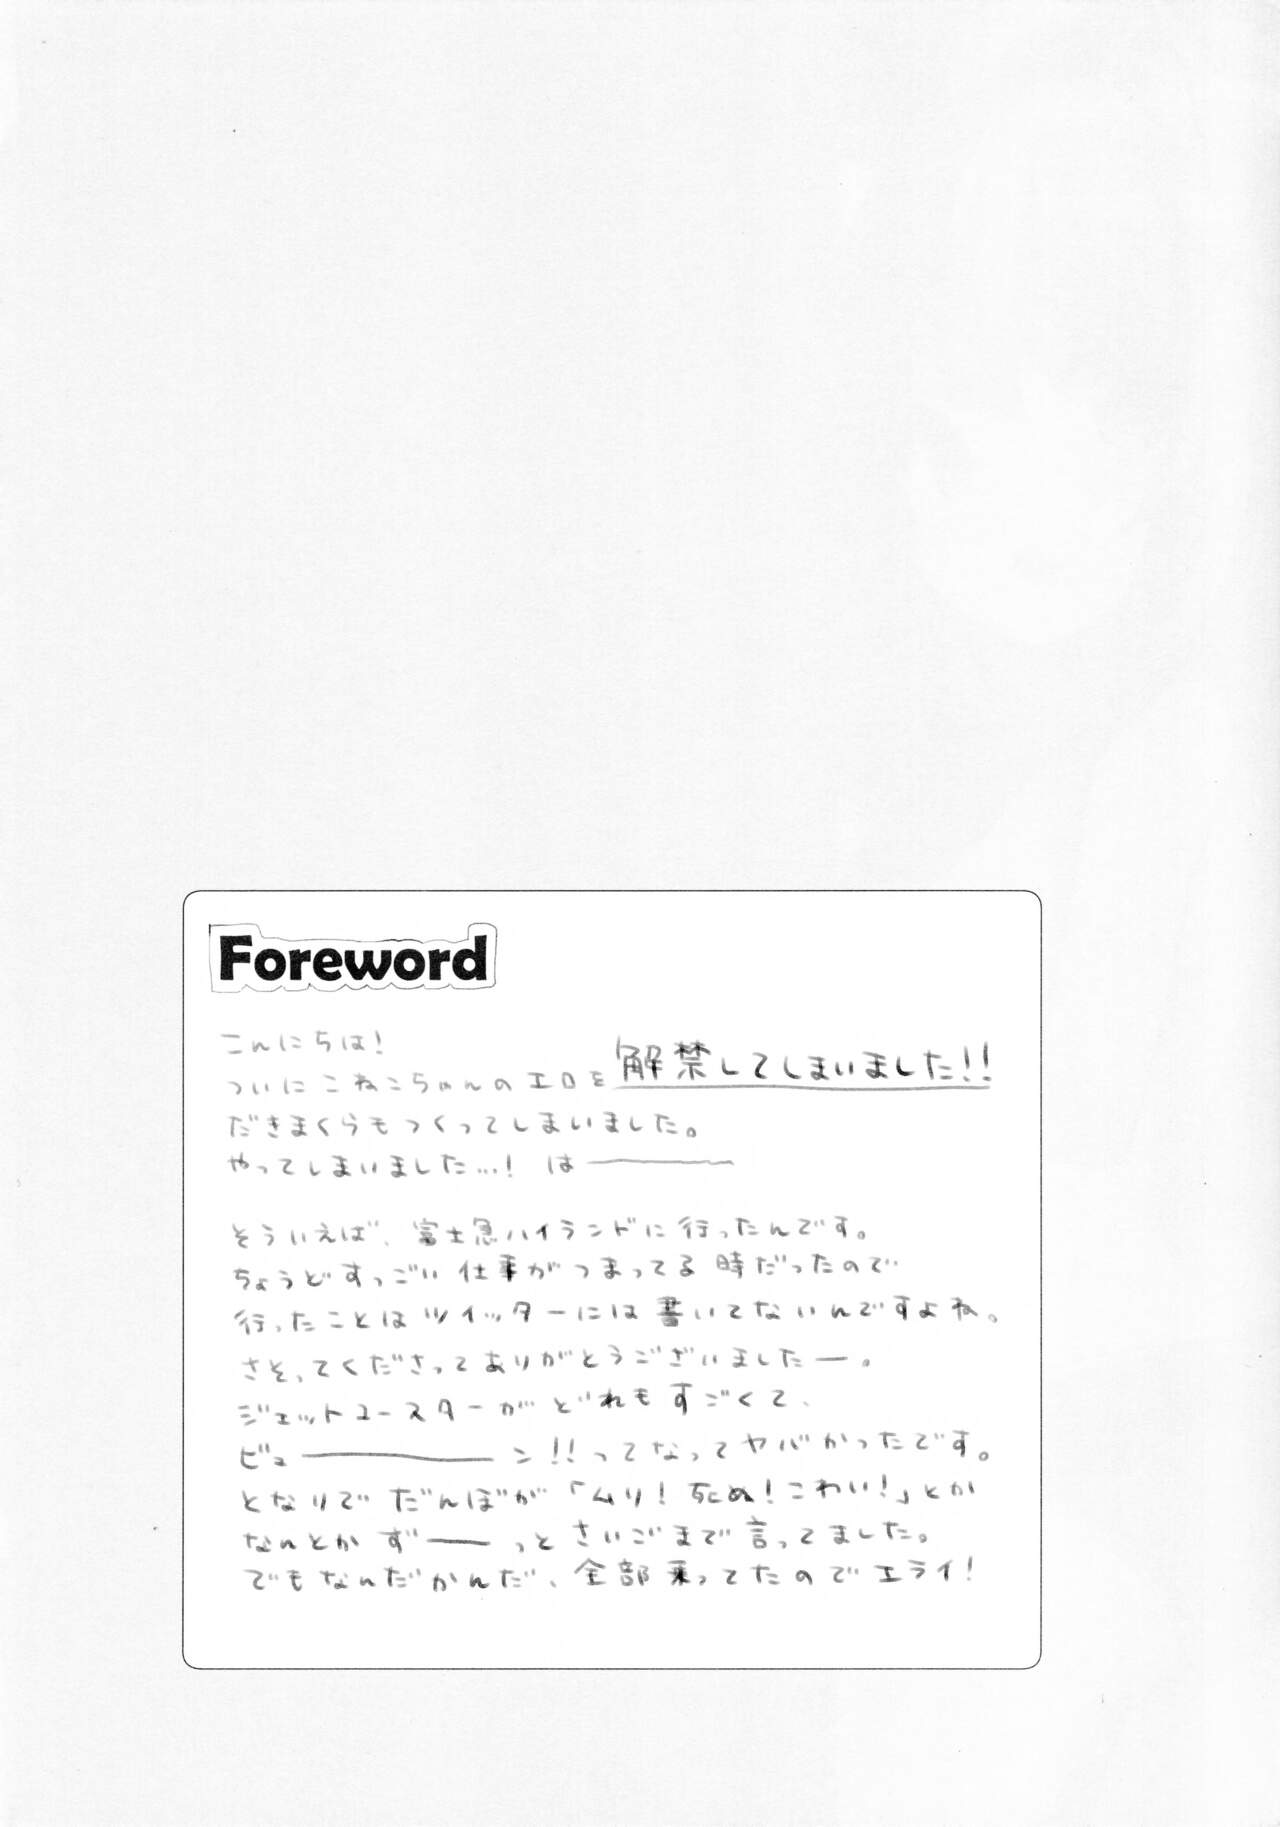 Foreword
こんにちは!
ついにこねこちゃんのエロを解禁してしまいました!!
だきまくらもつくってしまいました。
やってしまいました…! はーーー
そういえば、富士急ハイランドに行ったんです。
ちょうどすっごい仕事がつまってる時だったので
行ったことはツイッターには書いてないんですよね。
さそってくださってありがとうございましたー。
ジェットコースターがどれもすごくて、
ビューーーーン!!ってなってヤバかったです。
となりでだんぼが「ムリ!死ぬ!こわい!」とか
なんとかずーーっとさいごまで言ってました。
でもなんだかんだ、全部乗ってたのでエライ!